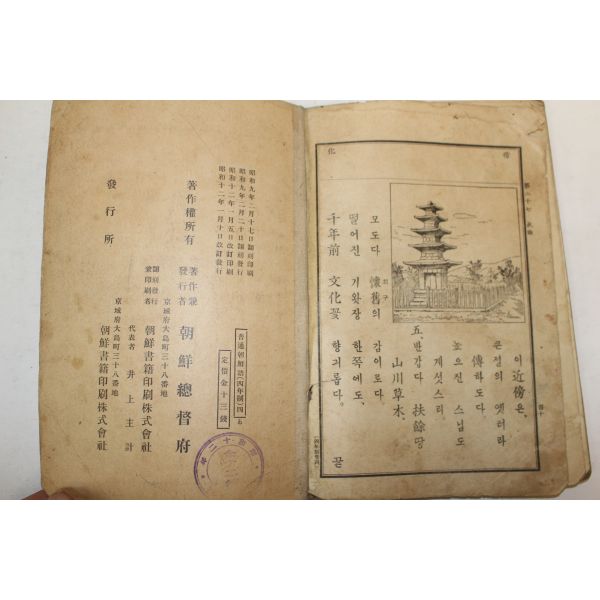 第二十七 扶餘
傍
化
이近傍은、
큰절의 옛터라
傳하도다.
높으신 스님도
게섯스리.
五、반갑다 扶餘땅
山川草木、
모도다 懷舊의 감이로다
회구
떨어진 기왓장 한쪽에도、
千年前 文化꽃 향긔롭다. 끝
昭和九年二月十七日飜刻印刷
昭和九年二月二十日飜刻發行
昭和十二年一月五日改訂印刷
昭和十二年一月十日改訂發行
普通朝鮮語(四年制)四
定價金十三錢
著作權所有
著作兼發行者 朝鮮總督府
京城府大島町三十八番地
飜刻發行兼印刷者 朝鮮書籍印刷株式會社
代表者 井上主計
京城府大島町三十八番地
發行所 朝鮮書籍印刷株式會社